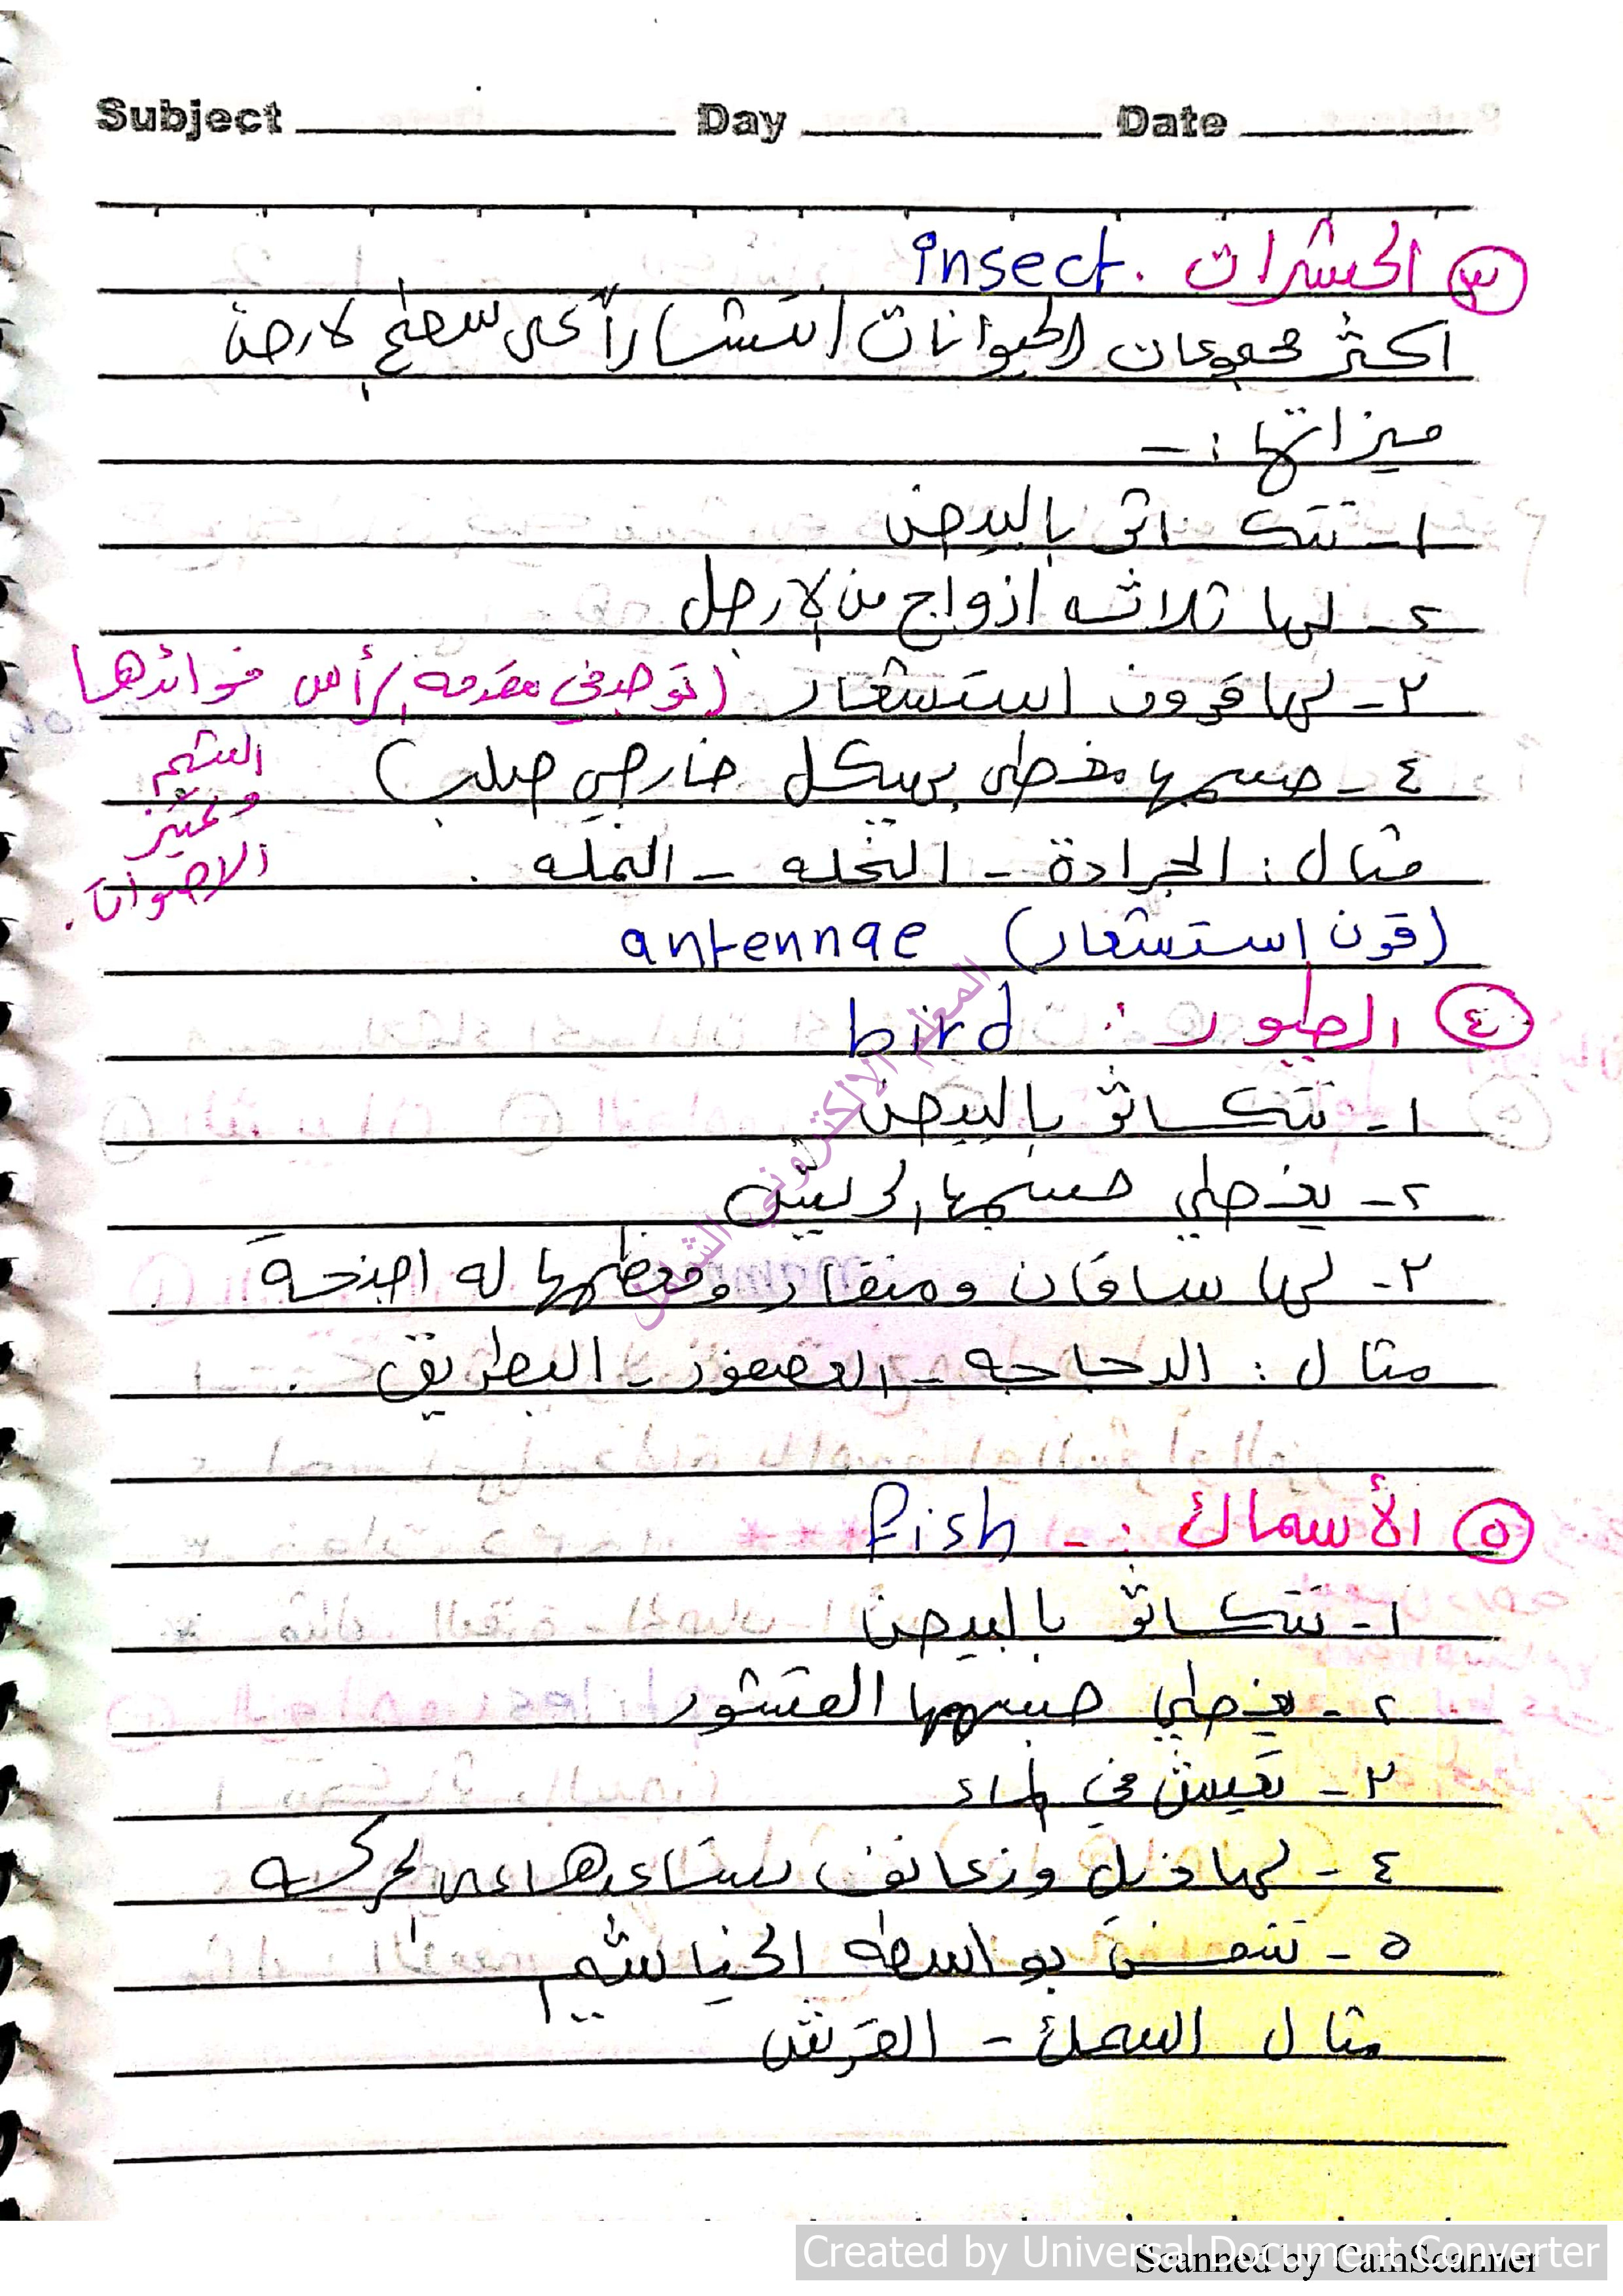 Subject Day Date
٣ الحشرات . insect
اكثر مجموعات الحيوانات انتشاراً على سطح الارض
ميزاتها : -
١ - تتكاثر بالبيض
٢ - لها ثلاثه ازواج من الارجل
٣ - لها قرون استشعار (توجد في مقدمه الرأس فوائدها
الشم
وتميّز
الاصوات .
٤ - جسمها مغطى بهيكل خارجي صلب )
مثال : الجرادة - النحله - النمله .
(قرن استشعار) antennae
٤ الطيور : bird
١ - تتكاثر بالبيض
٢ - يغطي جسمها الريش
٣ - لها ساقان ومنقار ومعظمها له اجنحه
مثال : الدجاجه - العصفور - البطريق .
٥ الأسماك : - fish
١ - تتكاثر بالبيض
٢ - يغطي جسمها القشور
٣ - تعيش في الماء
٤ - لها ذيل وزعانف تساعدها على الحركه
٥ - تتنفس بواسطه الخياشيم
مثال السمك - القرش
المعلم الالكتروني الشامل
Created by Universal Document Converter
Scanned by CamScanner